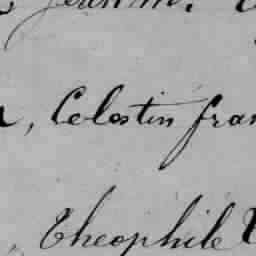 , Celestin fran
, Theophile